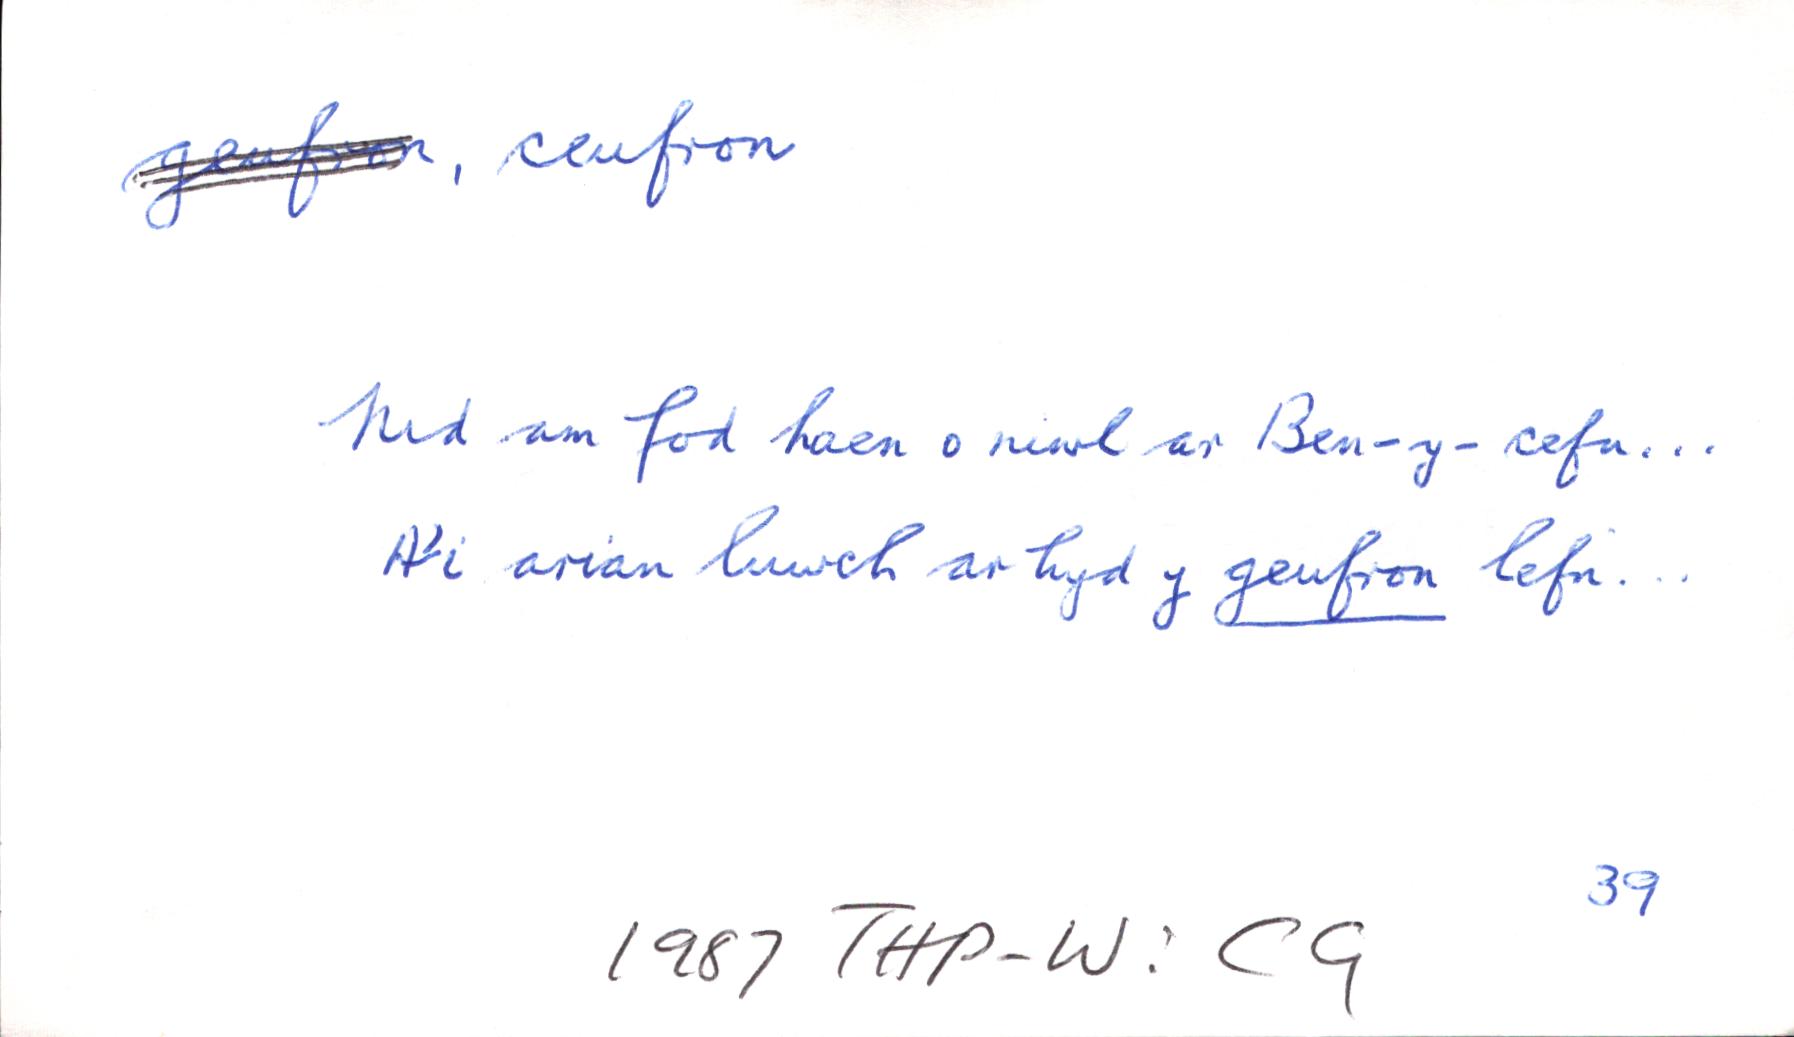 geufron, ceufron
Nid am fod haen o niwl ar Ben-y-cefn...
A'i arian luwch ar hyd y geufron lefn...
39
1987 THP-W: CG